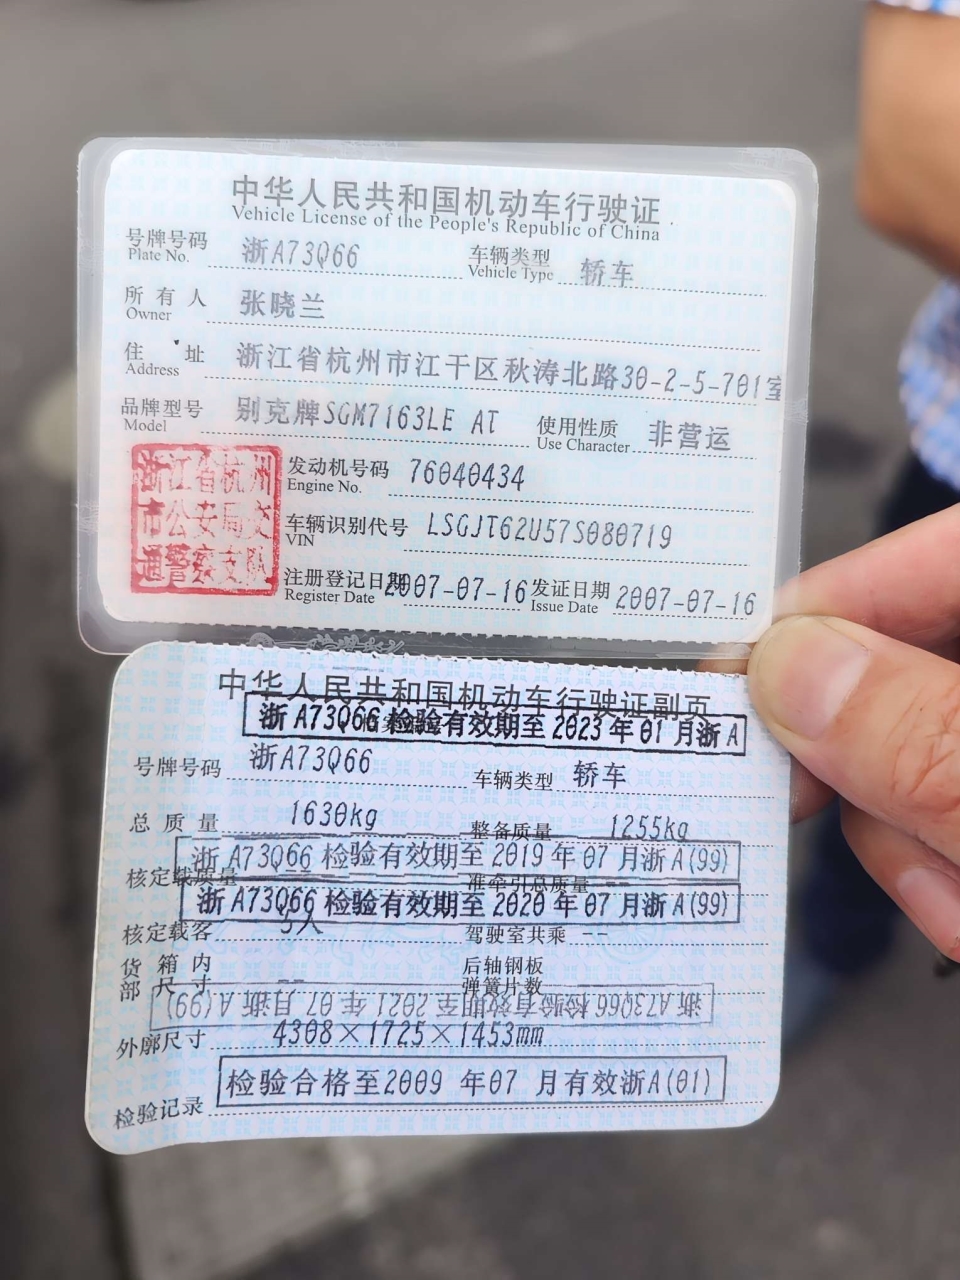 中华人民共和国机动车行驶证
Vehicle License of the People's Republic of China
号牌号码 浙A73Q66 车辆类型 轿车
Plate No. Vehicle Type
所有人 张晓兰
Owner
住址 浙江省杭州市江干区秋涛北路30-2-5-701室
Address
品牌型号 别克牌SGM7163LE AT 使用性质 非营运
Model Use Character
浙江省杭州市公安局交通警察支队
发动机号码 76040434
Engine No.
车辆识别代号 LSGJT62U57S080719
VIN
注册登记日期 2007-07-16 发证日期 2007-07-16
Register Date Issue Date
中华人民共和国机动车行驶证副页
浙A73Q66 检验有效期至2023年01月浙A
号牌号码 浙A73Q66 车辆类型 轿车
总质量 1630kg 整备质量 1255kg
浙A73Q66 检验有效期至2019年07月浙A(99)
核定载质量 -- 准牵引总质量 --
浙A73Q66 检验有效期至2020年07月浙A(99)
核定载客 5人 驾驶室共乘 --
货箱内部尺寸 -- 后轴钢板弹簧片数 --
浙A73Q66 检验有效期至2021年07月浙A(99)
外廓尺寸 4308×1725×1453mm
检验合格至2009年07月有效浙A(01)
检验记录